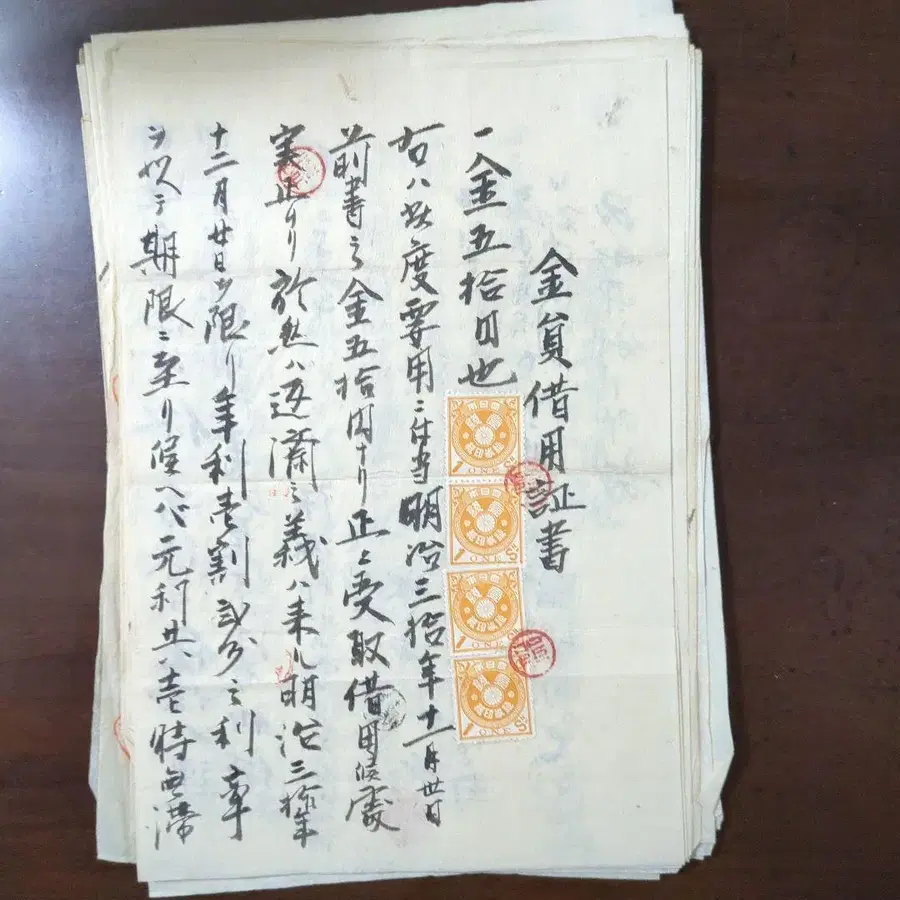 金員借用証書
一金五拾円也
右ハ此度要用ニ付当明治三拾年十一月卅日
前書之金五拾円ナリ正ニ受取借用候處
実正ナリ於然ハ返済之義ハ来ル明治三拾年
十二月廿日ヲ限リ年利壱割弐分之利率
ヲ以テ期限ニ至リ候ヘバ元利共壱時無滞
1 ONE Sⁿ
1 ONE Sⁿ
1 ONE Sⁿ
1 ONE Sⁿ